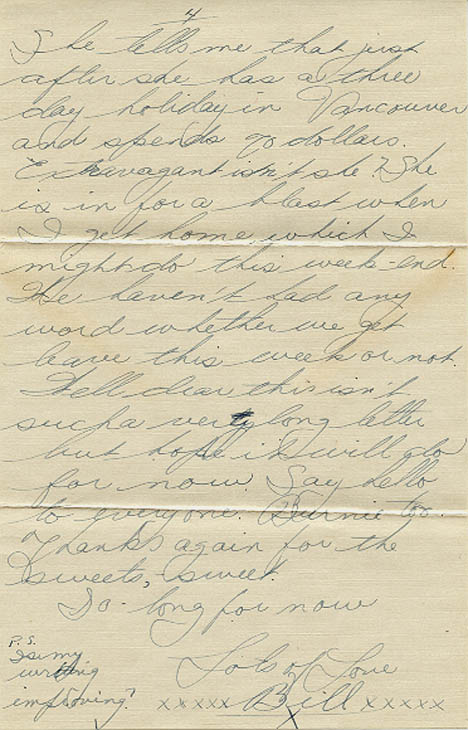 4
She tells me that just
after she has a three
day holiday in Vancouver
and spends 90 dollars.
Extravagant isn't she? She
is in for a blast when
I get home which I
might do this week-end.
We haven't had any
word whether we get
leave this week or not.
Well dear this isn't
such a very long letter
but hope it will do
for now. Say hello
to everyone. Burnie too.
Thanks again for the
sweets, sweet.
So long for now
Lots of Love
xxxxx Bill xxxxx
P.S.
Is my
writing
improving?